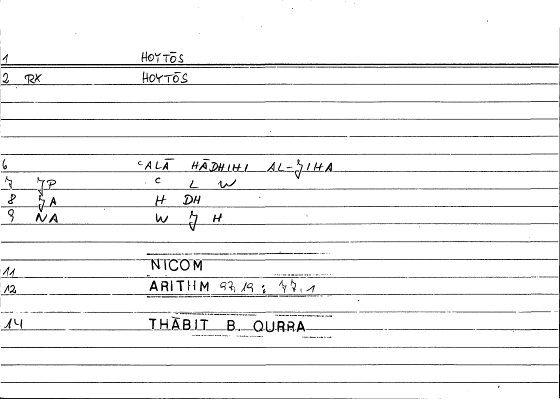 1 HOYTŌS
2 RX HOYTŌS
6 ʿALĀ HĀDHIHI AL-JIHA
7 JP ʿ L W
8 JA H DH
9 NA W J H
11 NICOM
12 ARITHM
14 THĀBIT B. QURRA